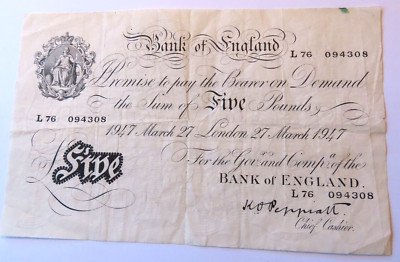 Bank of England
L 76 094308
Promise to pay the Bearer on Demand
the Sum of Five Pounds
L 76 094308
1947 March 27 London 27 March 1947
For the Govr. and Compa. of the
Five
BANK of ENGLAND.
L 76 094308
K O Peppiatt.
Chief Cashier.